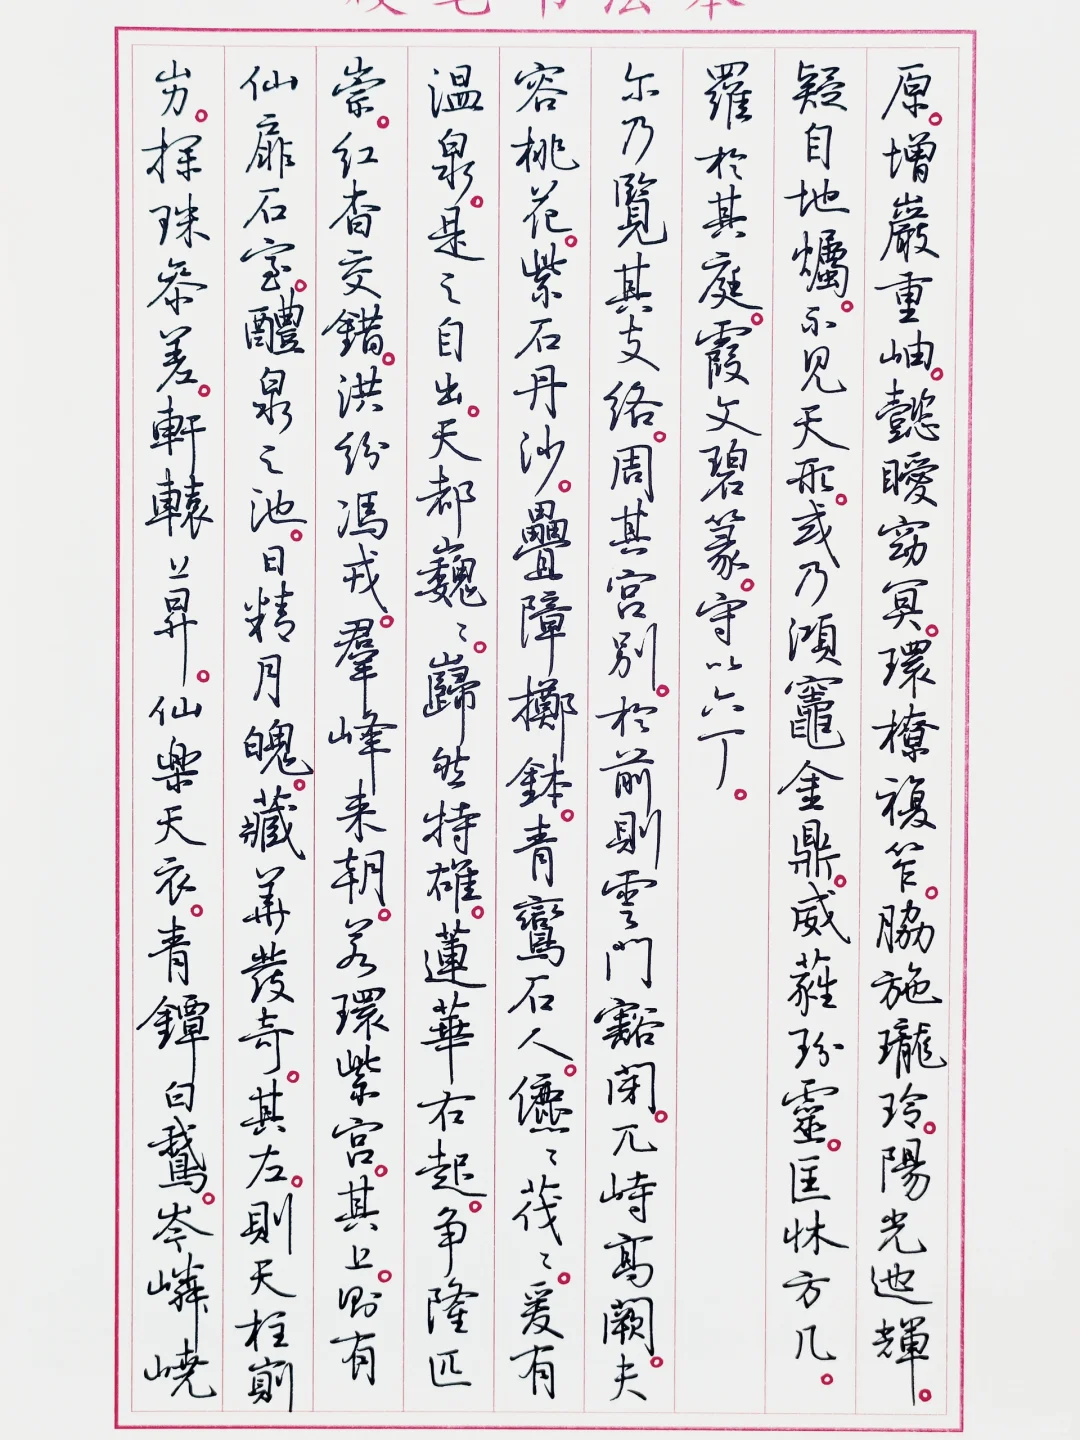 硬笔书法本
原。增巖重岫。懿曖窈冥。環橑複笮。脇施瓏玲。陽光迆輝。
疑自地爥。不見天形。或乃澒竈金鼎。威蕤玢靈。匡牀方几。
羅於其庭。霞文碧篆。守以六丁。
尔乃覽其支络。周其宫别。於前則雲門豁閉。兀峙高闕。夫
容桃花。紫石丹沙。疊障擲鉢。青鸞石人。儦〻茷〻。爰有
温泉。是之自出。天都巍〻。巋然特雄。蓮華右起。争隆匹
崇。红杳交錯。洪纷馮戎。羣峰来朝。若環紫宫。其上。则有
仙扉石室。醴泉之池。日精月魄。藏華發奇。其左。則天柱崱
屴。探珠叅差。軒轅上昇。仙樂天衣。青鐔白鵞。岑嶙嶢